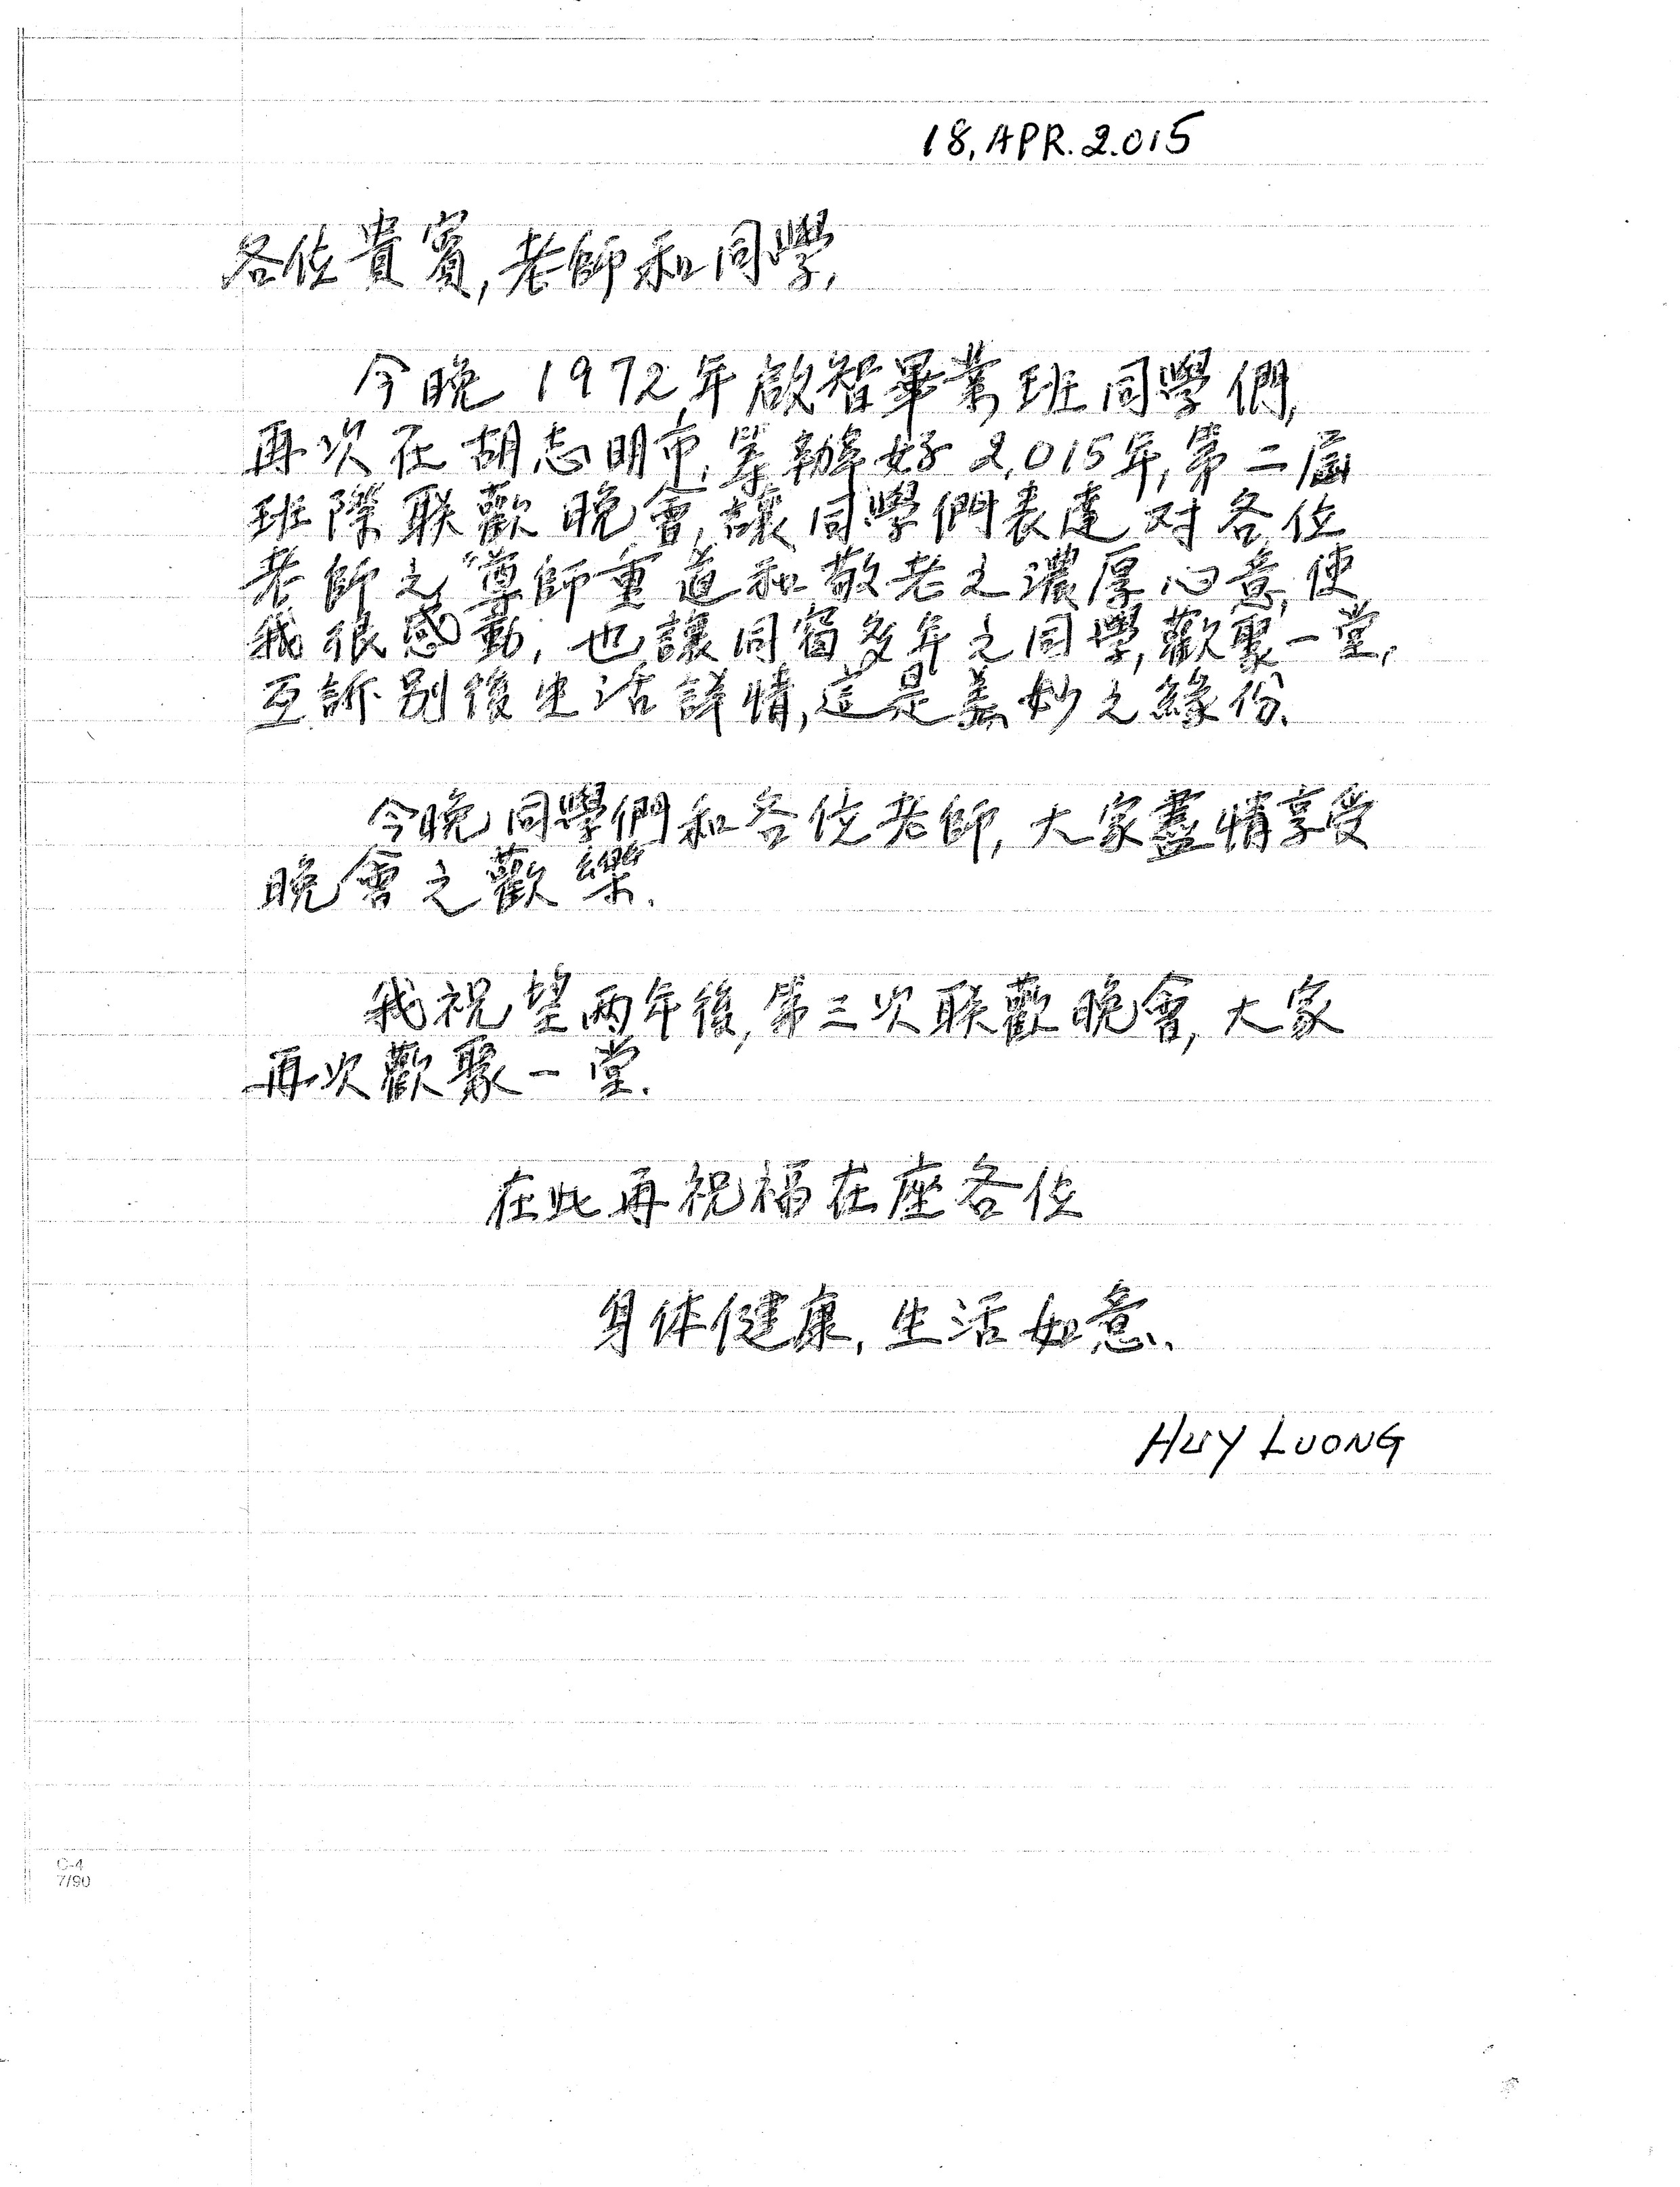 18, APR. 2.015
各位貴賓, 老師和同學,
今晚 1972年啟智畢業班同學們,
再次在胡志明市, 筹辦好 2,015年, 第二屆
班際联歡晚會, 讓同學們表達对各位
老師之“尊師重道和敬老之濃厚心意, 使
我很感動, 也讓同窗多年之同學, 歡聚一堂,
互訴別後生活詳情, 這是美妙之緣份.
今晚同學們和各位老師, 大家盡情享受
晚會之歡樂.
我祝望两年後, 第三次联歡晚會, 大家
再次歡聚一堂.
在此再祝福在座各位
身体健康, 生活如意.
HUY LUONG
C-4
7/90